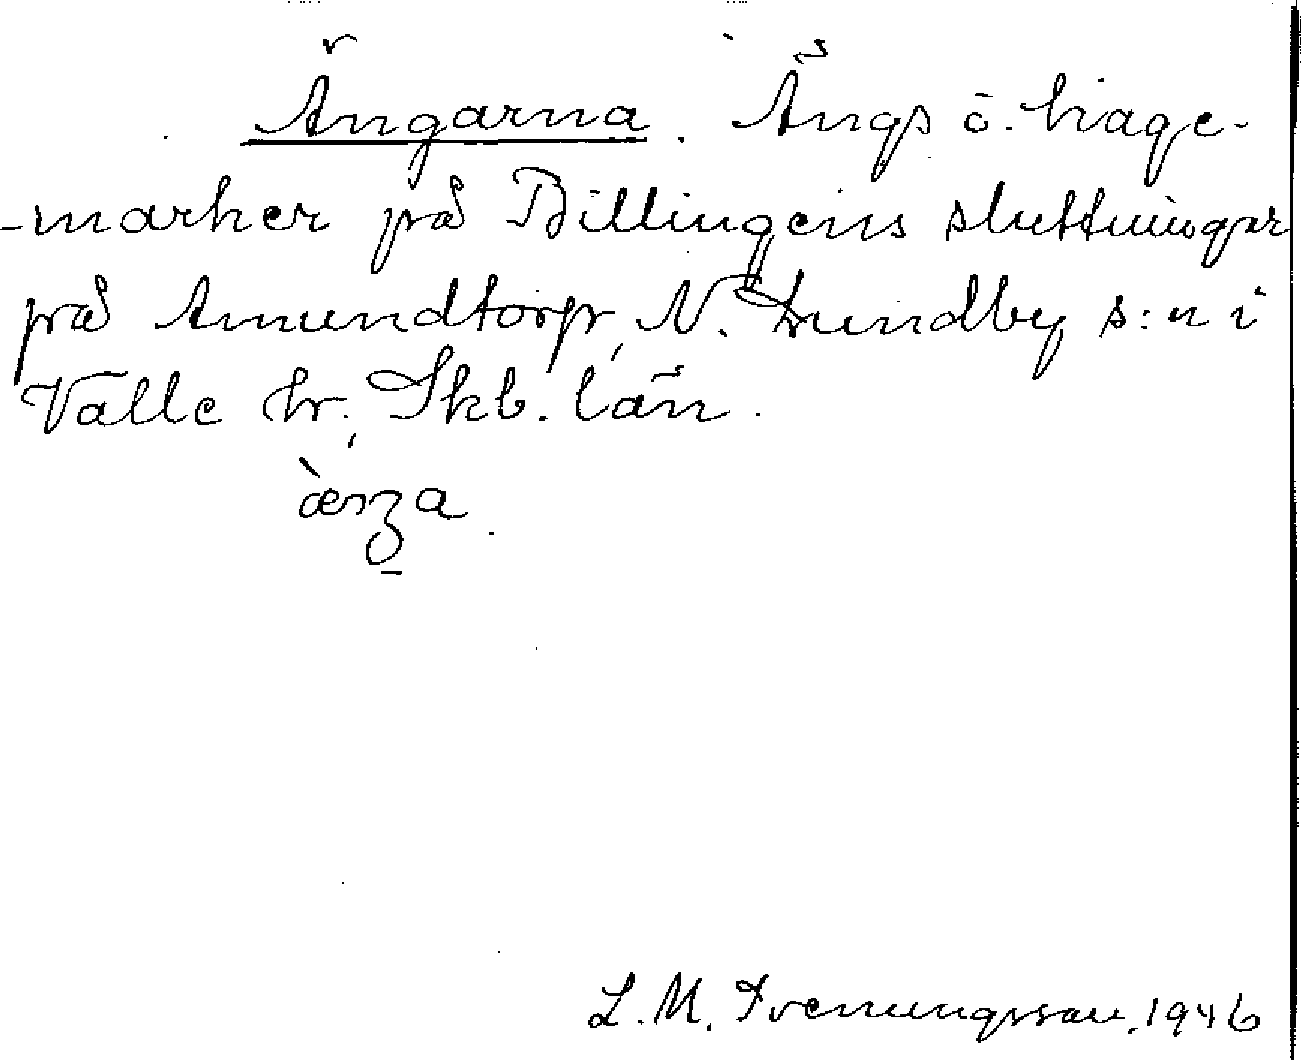 Ängarna. Ängs o. hage-
-marker på Billingens sluttningar
på Amundtorp, N. Lundby s:n i
Valle hr, Skb. län.
L. M. Svenungsson. 1946